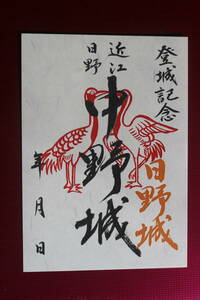 登城記念
日野城
近江
日野
中野城
年月日